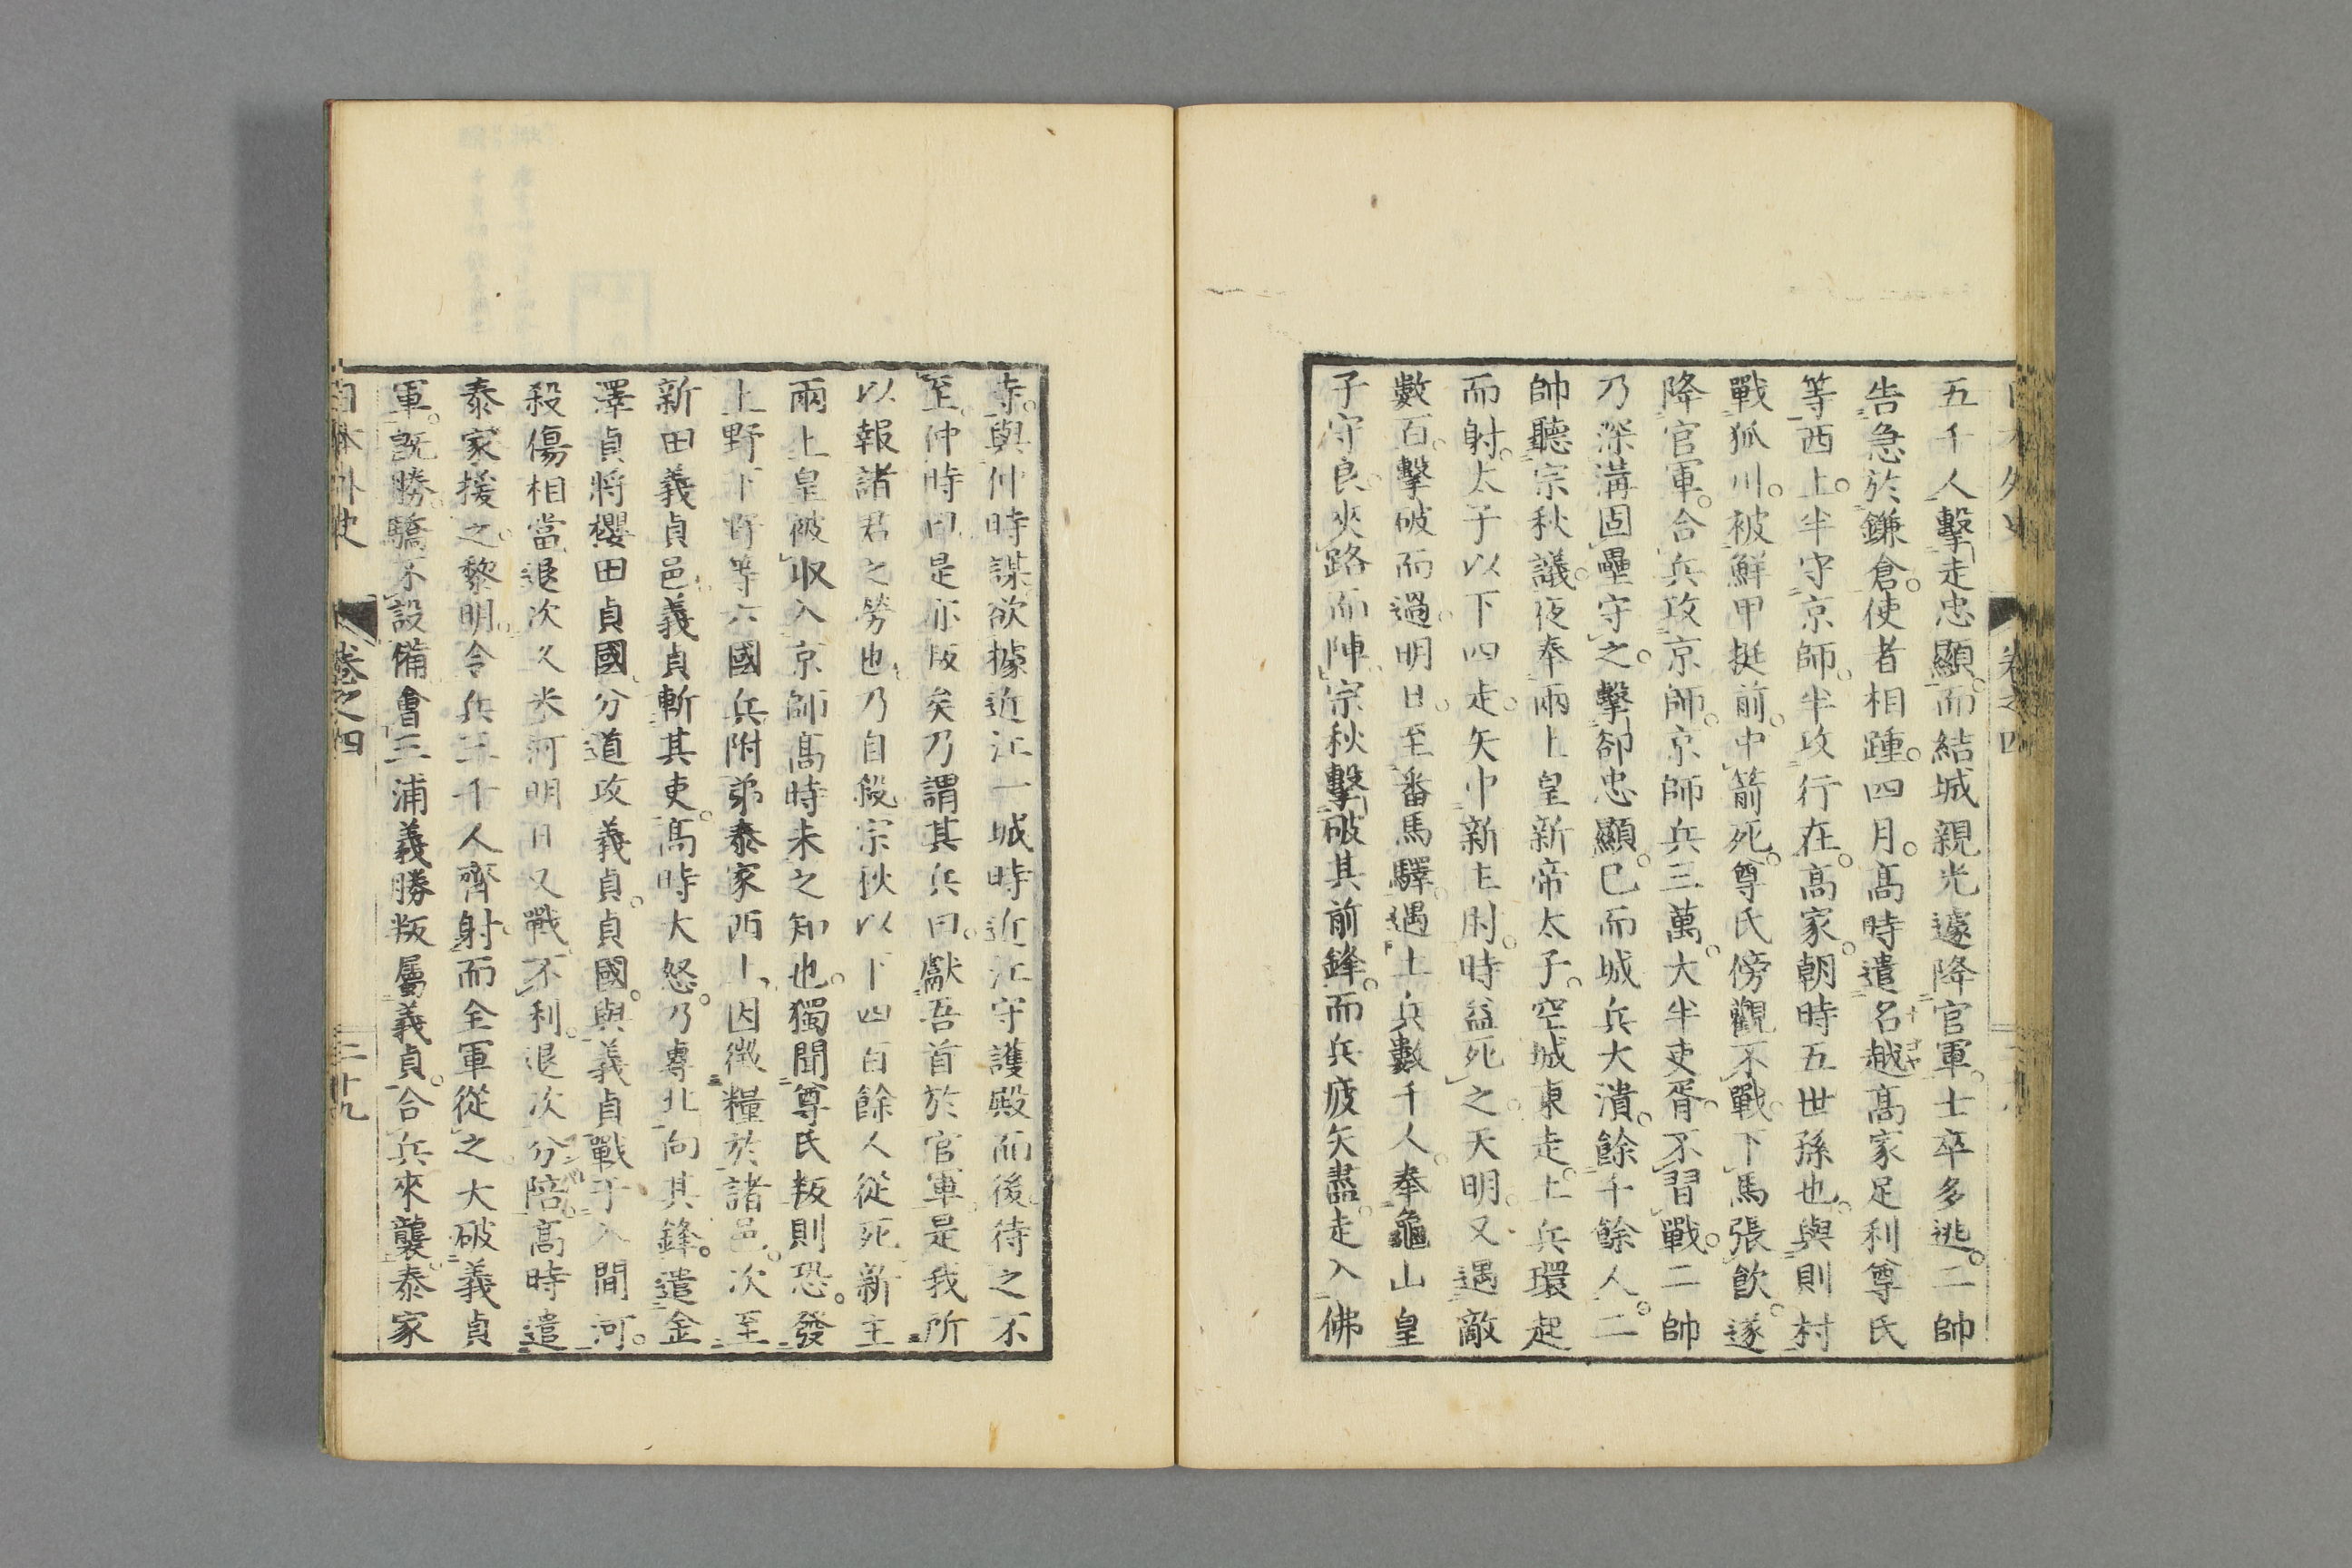 五千人擊走忠顯。而結城親光遽降官軍。士卒多逃。二帥
告急於鎌倉。使者相踵。四月。高時遣名越高家足利尊氏
等西上。半守京師。半攻行在。高家。朝時五世孫也。與則村
戰狐川。被鮮甲挺前。中箭死。尊氏傍觀不戰。下馬張飲。遂
降官軍。合兵攻京師。京師兵三萬。大半吏胥。不習戰。二帥
乃深溝固壘守之。擊卻忠顯。已而城兵大潰。餘千餘人。二
帥聽宗秋議。夜奉兩上皇新帝太子。空城東走。土兵環起
而射。太子以下四走。矢中新主肘。時益死之。天明。又遇敵
數百。擊破而過。明日。至番馬驛。遇土兵數千人。奉龜山皇
子守良。夾路而陣。宗秋擊破其前鋒。而兵疲矢盡。走入佛
寺。與仲時謀。欲據近江一城。時近江守護殿而後。待之不
至。仲時曰。是亦叛矣。乃謂其兵曰。獻吾首於官軍。是我所
以報諸君之勞也。乃自殺。宗秋以下四百餘人從死。新主
兩上皇被取入京師。高時未之知也。獨聞尊氏叛則恐。發
上野下野等六國兵附弟泰家西上。因徵糧於諸邑。次至
新田義貞邑。義貞斬其吏。高時大怒。乃專北向其鋒。遣金
澤貞將櫻田貞國。分道攻義貞。貞國。與義貞戰于入間河。
殺傷相當。退次久米河。明日又戰。不利。退次分陪。高時遣
泰家援之。黎明。令兵三千人齊射。而全軍從之。大破義貞
軍。既勝。驕不設備。會三浦義勝叛屬義貞。合兵來襲。泰家
日本外史 卷之四 二十九